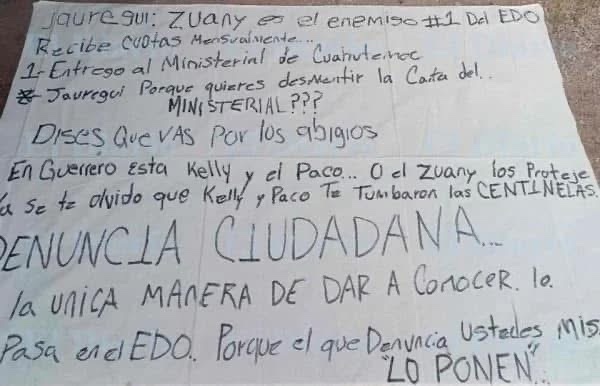 Jauregui: Zuany es el enemigo #1 Del EDO
Recibe cuotas Mensualmente...
1- Entrego al Ministerial de Cuahutemoc
- Jauregui Porque quieres desmentir la Carta del..
MINISTERIAL???
DISES QUE VAS Por los abigios
En Guerrero Esta Kelly y el Paco... O el Zuany los Proteje
Ya se te olvido que Kelly y Paco Te Tumbaron las CENTINELAS.
DENUNCIA CIUDADANA...
la UNICA MANERA DE DAR A Conocer. lo
Pasa en el EDO. Porque el que Denuncia Ustedes Mis.
"LO PONEN"..